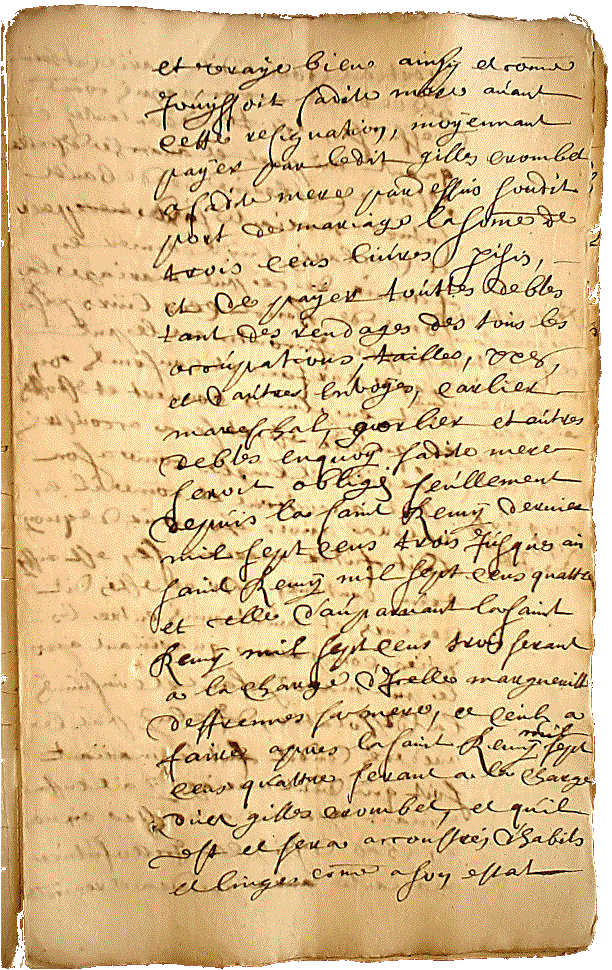 et vraÿe biens ainsÿ et come
Jouÿssoit sadite mere auant
cette resignation, moÿennant
paÿer par ledit gilles crombet
a sadite mere pardessus soudit
port de mariage la some de
trois cens liures
et de paÿer touttes debtes
tant des rendages des tous les
occupations, tailles, xxes,
et d'autres
mareschal, gorlier et autres
debtes enquoÿ sadite mere
seroit obligé seullement
depuis la saint Remÿ dernier
mil sept cens trois Jusques au
saint Remÿ mil sept cens quattre
et celles d'auparauant la saint
Remÿ mil sept cens trois serant
a la charge d'Icelle margueritt
deffrennes sa mere, et ceulx a
faire apres la saint Remÿ mil sept
cens quattre serant a la charge
dicz gilles crombet, et qu'il
est et sera accoustrés d'habits
et linges come a son estat